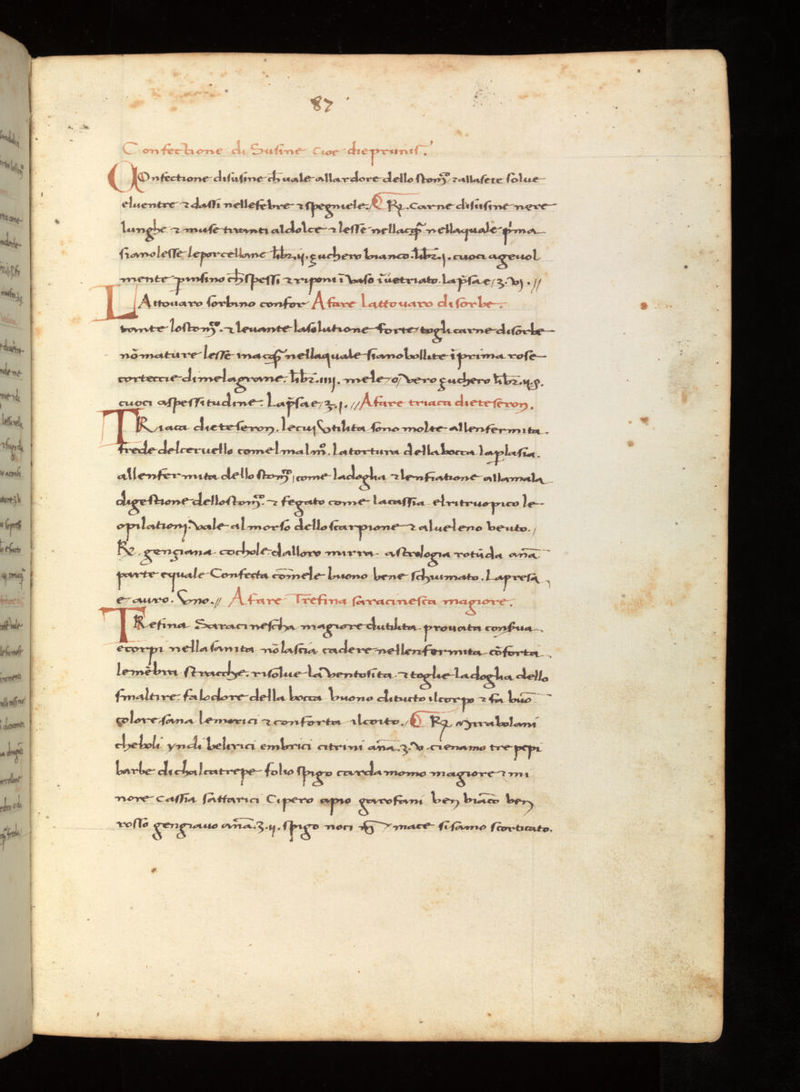 87
Confectione di Susine cioe di epruni⁊.
Confectione di susine ch̄ vale allardore dello stom̄o. ⁊ alla sete solue
eluentre ⁊ dassi nelle febre ⁊ spegniele. R⁊. Carne di susine nere
lunghe ⁊ muse tiranti al dolce ⁊ lesse nellacq̄ nellaquale pr̄ma
siano lesse le porcellane libr̄. ij. çuchero bianco. libr̄. j. cuoci agevol
mente p insino ch̄ spessi ⁊ riponi ī vaso īvetriato. La pr̄sa e, ʒ. vj. //
Lattovaro sorbino confor A fare Lattovaro di sorbe.
tante lo stom̄o. ⁊ levante la solutione forte: togli carne di sorbe
nō mature lesse in acq̄ nellaquale siano bollite ī prima rose
cortecie di melagrane. libr̄. iiij. mele, o, vero çuchero libr̄. ij. ꝭ.
cuoci a spessitudine. La pr̄sa e, ʒ. j. // A fare triaca dieteseron.
TRiaca dieteseron. le cui Vtilita sono molte all enfermita.
frede del ceruello come l mal m̄. la tortura della bocca la plasia.
all enfermita dello stom̄o, come la doglia ⁊ l enfiatione alla mala
digestione dello stom̄o. ⁊ fegato come la cassia el ritruopico le
opilationi. Vale al morso dello scarpione ⁊ al veleno beuto.
R⁊. gengiana cochole dalloro mirra astrologia rotūda anā
parte equale Confecta cō mele buono bene schiumato. La presa,
e auro. Vno. // A fare Trefina saracinesca magiore.
TRefina Saracinescha magiore dutilita provata conserua.
e corpi nella sanita nō lascia cadere nell enfermita cōforta
le mēbra stracche. risolue la Ventosita. ⁊ toglie la doglia dello
smaltire. fa lodore della bocca buono di tutto il corpo ⁊ fa buō
colore sana le morici ⁊ conforta il coito. R⁊ Mirabolani
cheboli yndi belirici embrici citrini anā. ʒ. v. cienamo tre pepi
barbe di chalcatrepe folio spigo cardamomo magiore ⁊ mi
nore Cassia sattarici Cipero apio garofani ben biāco ben
rosso gengiauo anā. ʒ. ij. spigo noci mace sisamo scorticato.